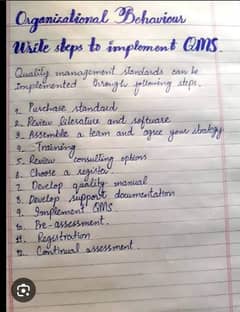 Organizational Behaviour
Write steps to implement QMS.
Quality management standards can be
Implemented through following steps.
1. Purchase standard
2. Review literature and software
3. Assemble a team and agree your strategy
4. Training
5. Review consulting options
6. Choose a register
7. Develop quality manual
8. Develop support documentation
9. Implement QMS.
10. Pre-assessment.
11. Registration
12. Continual assessment.